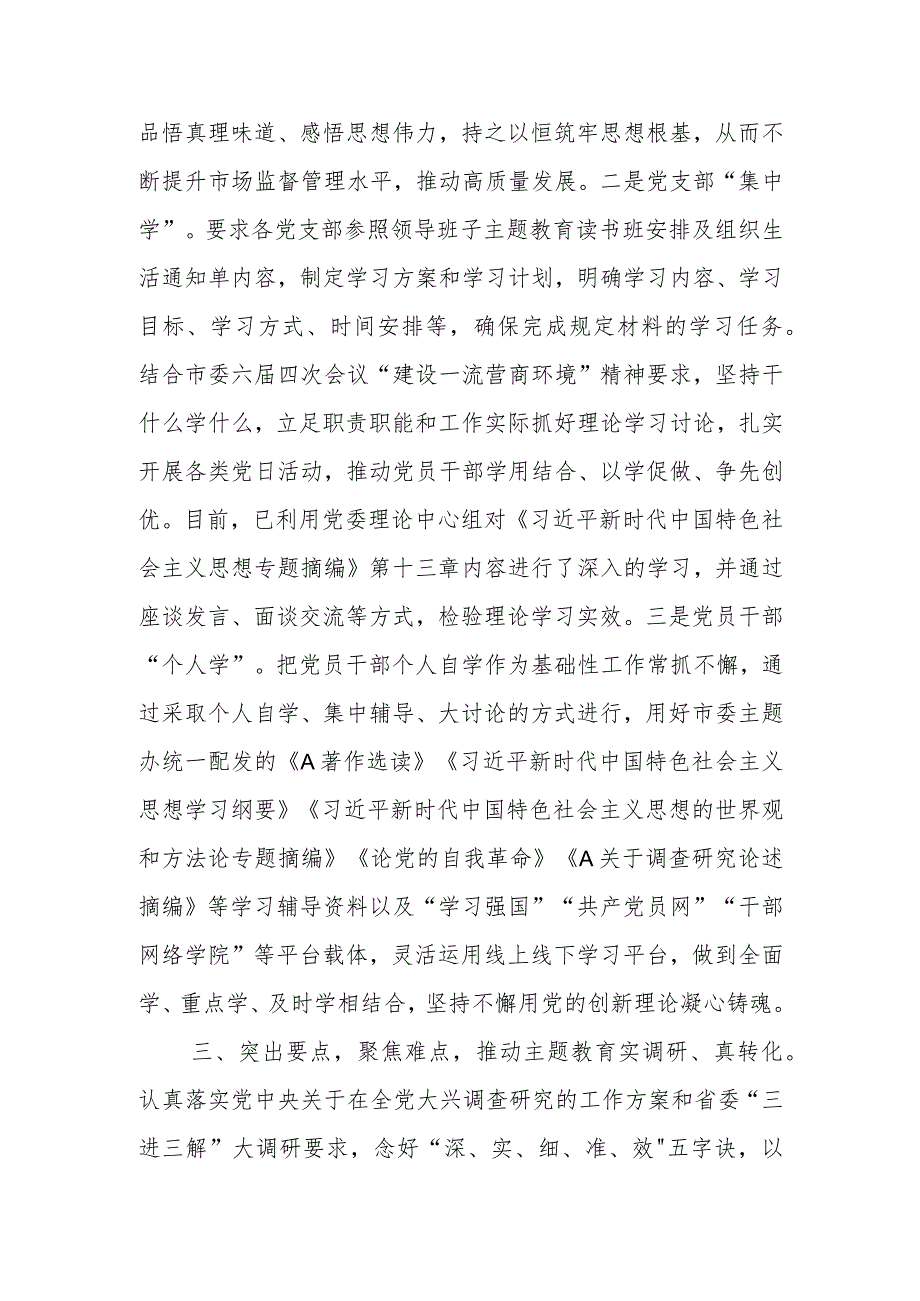 品悟真理味道、感悟思想伟力，持之以恒筑牢思想根基，从而不
断提升市场监督管理水平，推动高质量发展。二是党支部“集中
学”。要求各党支部参照领导班子主题教育读书班安排及组织生
活通知单内容，制定学习方案和学习计划，明确学习内容、学习
目标、学习方式、时间安排等，确保完成规定材料的学习任务。
结合市委六届四次会议“建设一流营商环境”精神要求，坚持干
什么学什么，立足职责职能和工作实际抓好理论学习讨论，扎实
开展各类党日活动，推动党员干部学用结合、以学促做、争先创
优。目前，已利用党委理论中心组对《习近平新时代中国特色社
会主义思想专题摘编》第十三章内容进行了深入的学习，并通过
座谈发言、面谈交流等方式，检验理论学习实效。三是党员干部
“个人学”。把党员干部个人自学作为基础性工作常抓不懈，通
过采取个人自学、集中辅导、大讨论的方式进行，用好市委主题
办统一配发的《A著作选读》《习近平新时代中国特色社会主义
思想学习纲要》《习近平新时代中国特色社会主义思想的世界观
和方法论专题摘编》《论党的自我革命》《A关于调查研究论述
摘编》等学习辅导资料以及“学习强国”“共产党员网”“干部
网络学院”等平台载体，灵活运用线上线下学习平台，做到全面
学、重点学、及时学相结合，坚持不懈用党的创新理论凝心铸魂。
三、突出要点，聚焦难点，推动主题教育实调研、真转化。
认真落实党中央关于在全党大兴调查研究的工作方案和省委“三
进三解”大调研要求，念好“深、实、细、准、效"五字诀，以